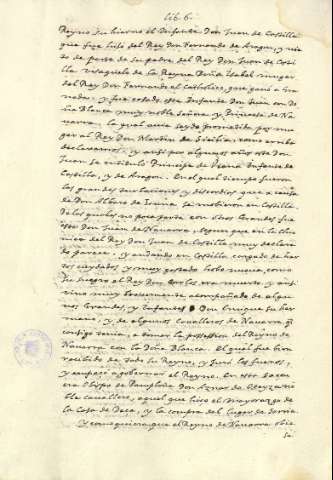 lib. 6.
Reyno su hierno el Infante Don Juan de Castilla
que fue hijo del Rey Don Fernando de Aragon, y nie
to de parte de su padre, del Rey Don Juan de Casti
lla visaguelo de la Reyna Doña Isabel muger
del Rey Don Fernando el Catholico, que ganó a Gra
nada: y fue casado, este Infante Don Juan con Do
ña Blanca muy noble Señora y Princesa de Na
varra, la qual avia seydo prometida por mu
ger al Rey Don Martin de Sicilia: como arriba
declaramos, y ansi por algunos años este Don
Juan se intituló Principe de Viana Infante de
Castilla, y de Aragon. En el qual tiempo fueron
las grandes turbaciones y discordias que a causa
de Don Alvaro de Luna se movieron en Castilla.
De los quales no poca parte con otros Grandes fue
este Don Juan de Navarra, segun que en la Chro
nica del Rey Don Juan de Castilla muy declara
do parece, y andando en Castilla cargado de har
tos cuydados, y muy gastado hobo nueva, como
su suegro el Rey Don Carlos era muerto, y ansi
vino muy brevemente acompañado de algu
nos Grandes, y Infantes Don Enrique su her
mano, y de algunos cavalleros de Navarra q
consigo tenia, a tomar la possession del Reyno de
Navarra con la Doña Blanca. El qual fue bien
recibido de todo su Reyno, y juró los fueros,
y empeçó a gobernar el Reyno. En esta sazon
era Obispo de Pamplona Don
ble cavallero, aquel que hizo el mayorazgo de
la Casa de Vaca, y la compra del lugar de Sorria.
Y como quiera que el Reyno de Navarra obie